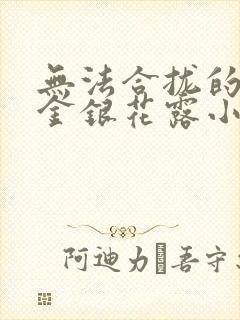 無法合拢的
金銀花露小
阿迪力·吾守